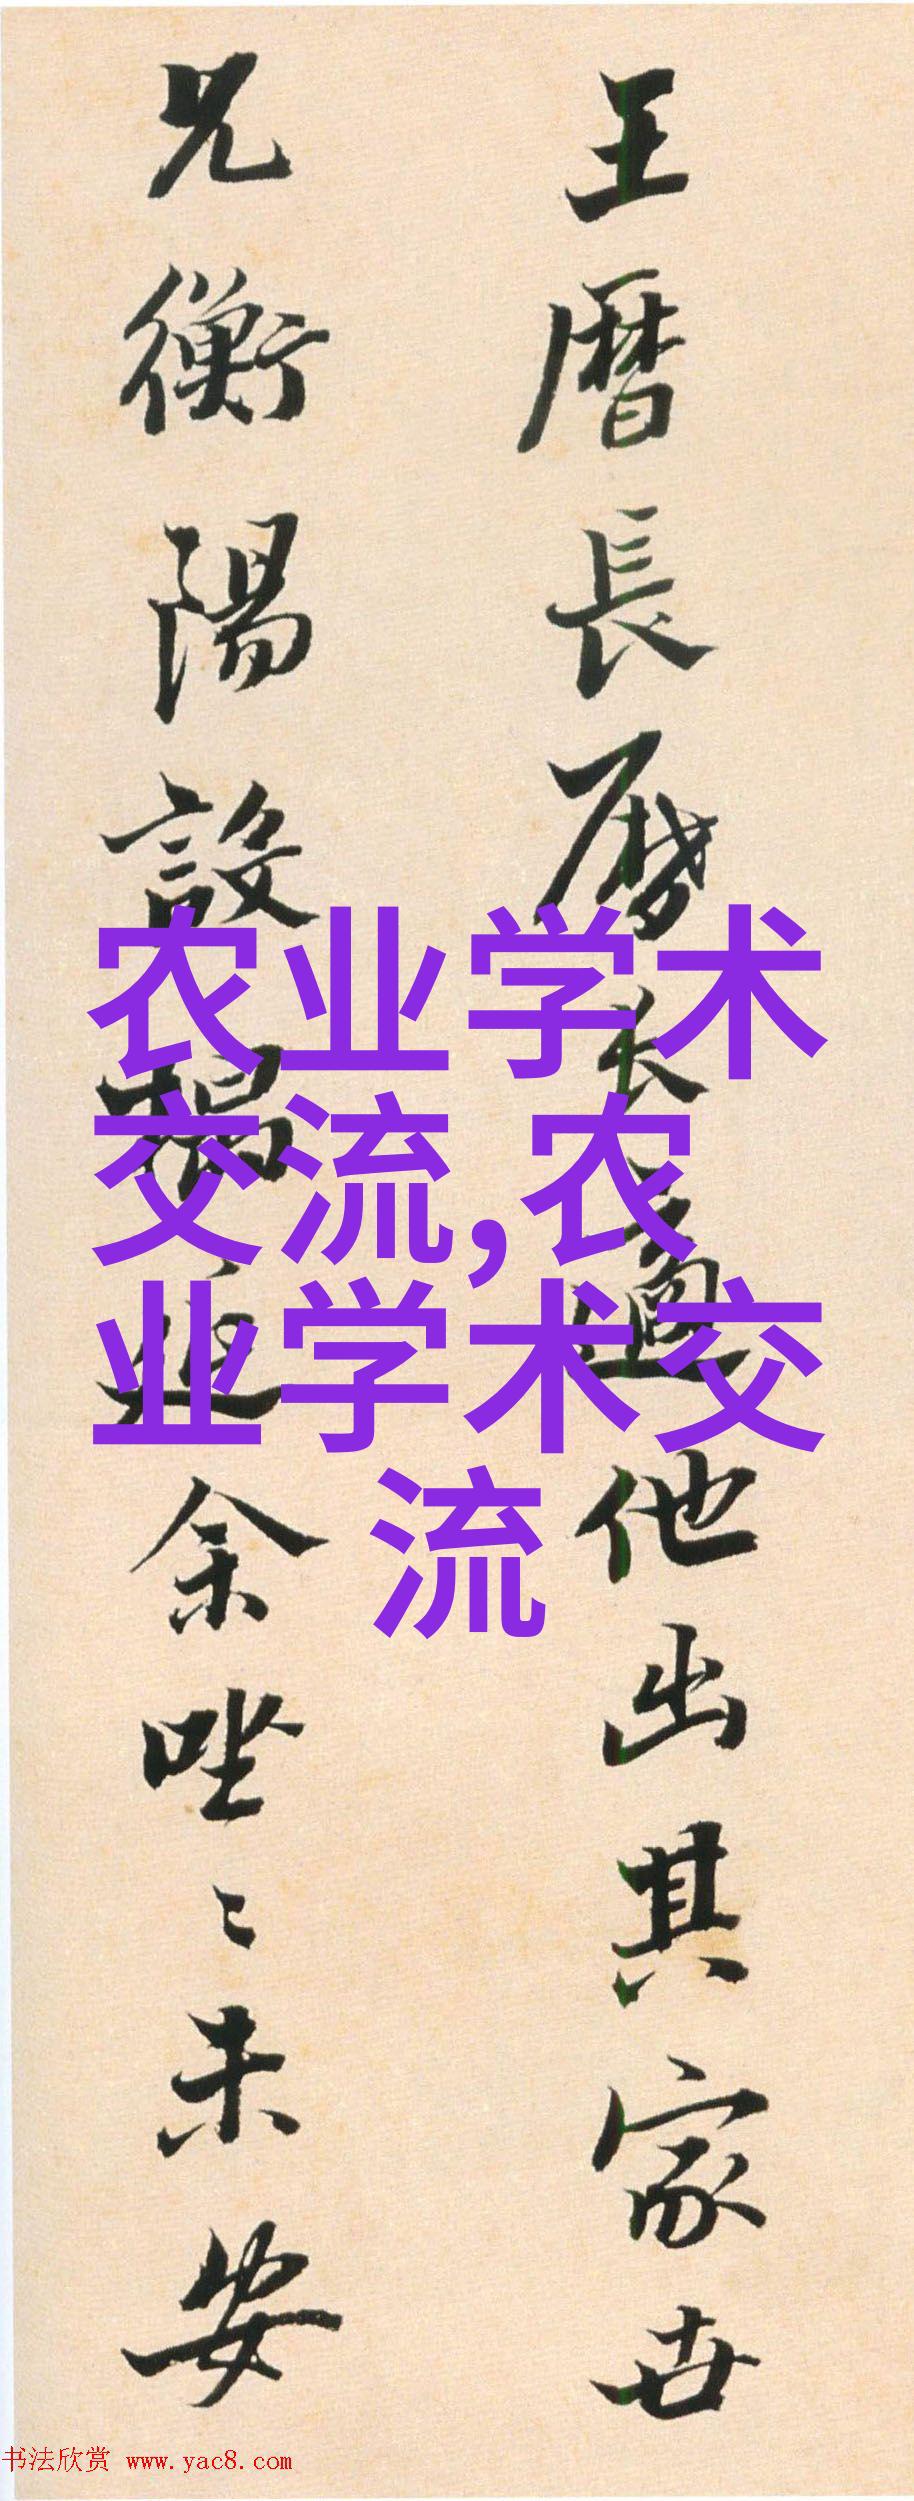 王曆長曆长適他出其家世
兄衡陽設榻延余坐〻未安
农业学术
交流,农
业学术交
流
书法欣赏 www.yac8.com